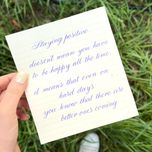 Staying positive
doesn't mean you have
to be happy all the time.
it means that even on
hard days
you know that there are
better ones coming